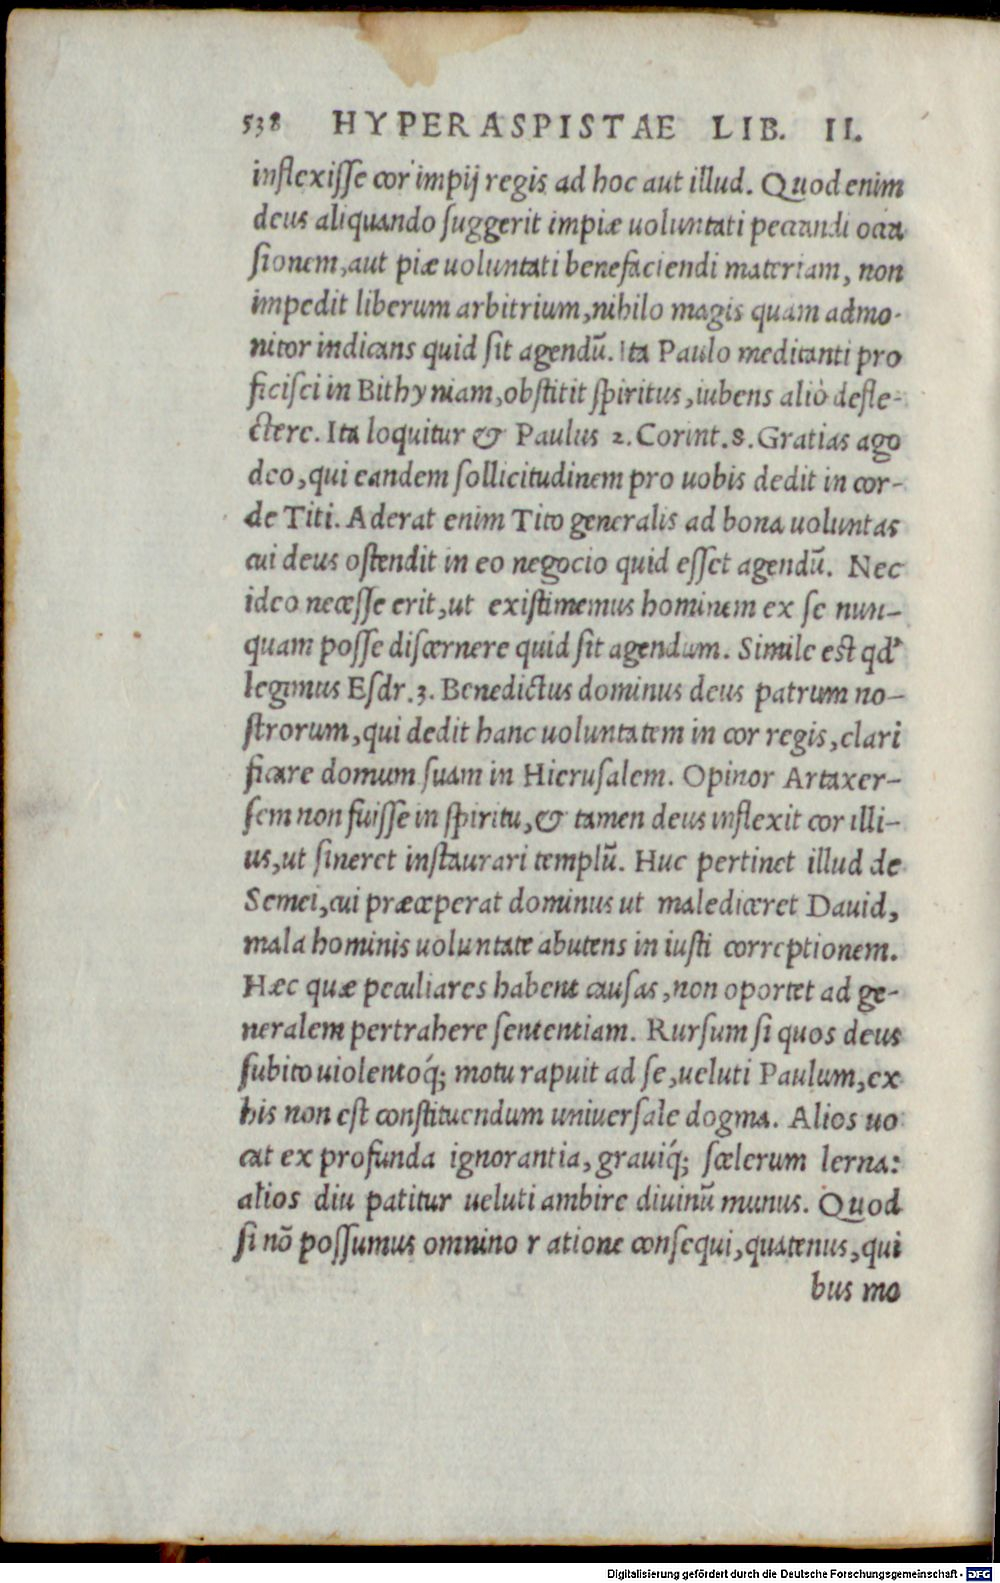 538 HYPERASPISTAE LIB. II.
inflexisse cor impij regis ad hoc aut illud. Quod enim
deus aliquando suggerit impiæ uoluntati peccandi occa
sionem, aut piæ uoluntati benefaciendi materiam, non
impedit liberum arbitrium, nihilo magis quam admo-
nitor indicans quid sit agendū. Ita Paulo meditanti pro
ficisci in Bithyniam, obstitit spiritus, iubens aliò defle-
ctere. Ita loquitur & Paulus 2. Corint. 8. Gratias ago
deo, qui eandem sollicitudinem pro uobis dedit in cor-
de Titi. Aderat enim Tito generalis ad bona uoluntas
cui deus ostendit in eo negocio quid esset agendū. Nec
ideo necesse erit, ut existimemus hominem ex se nun-
quam posse discernere quid sit agendum. Simile est qd'
legimus Esdr. 3. Benedictus dominus deus patrum no-
strorum, qui dedit hanc uoluntatem in cor regis, clari
ficare domum suam in Hierusalem. Opinor Artaxer-
sem non fuisse in spiritu, & tamen deus inflexit cor illi-
us, ut sineret instaurari templū. Huc pertinet illud de
Semei, cui præceperat dominus ut malediceret Dauid,
mala hominis uoluntate abutens in iusti correptionem.
Hæc quæ peculiares habent causas, non oportet ad ge-
neralem pertrahere sententiam. Rursum si quos deus
subito uiolentoq́; motu rapuit ad se, ueluti Paulum, ex
his non est constituendum uniuersale dogma. Alios uo
cat ex profunda ignorantia, grauiq́; scelerum lerna:
alios diu patitur ueluti ambire diuinū munus. Quod
si nō possumus omnino ratione consequi, quatenus, qui
bus mo
Digitalisierung gefördert durch die Deutsche Forschungsgemeinschaft - DFG